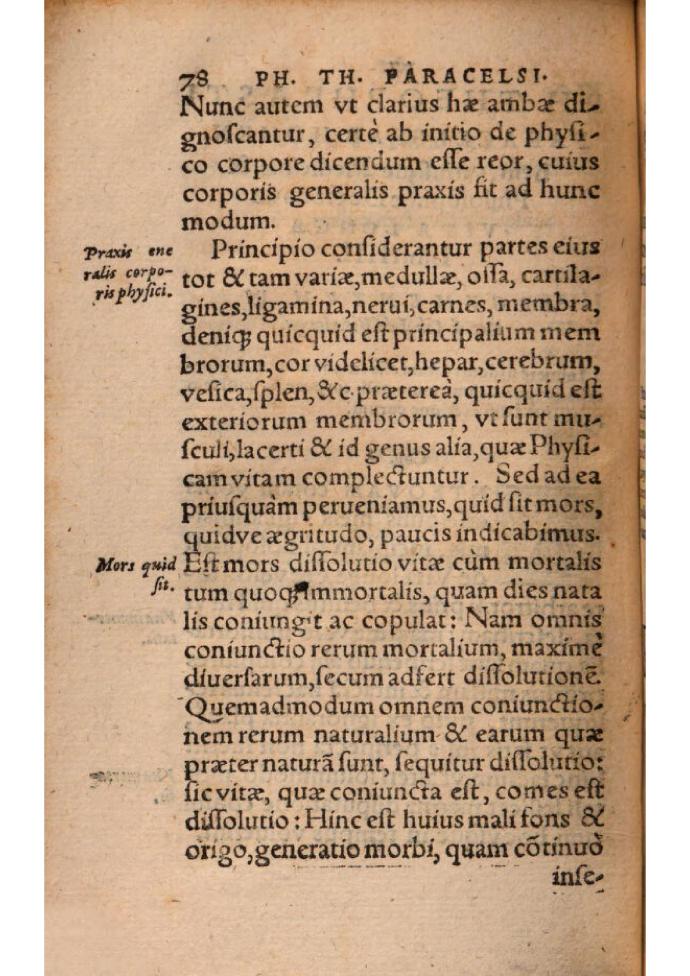 78 PH. TH. PARACELSI.
Nunc autem vt clarius hæ ambæ di-
gnoſcantur, certè ab initio de phyſi-
co corpore dicendum eſſe reor, cuius
corporis generalis praxis ſit ad hunc
modum.
Principio conſiderantur partes eius
Praxis ene
ralis corpo-
ris phyſici.
tot & tam variæ, medullæ, oſſa, cartila-
gines, ligamina, nerui, carnes, membra,
deniqꝫ quicquid eſt principalium mem
brorum, cor videlicet, hepar, cerebrum,
veſica, ſplen, &c. prætereà, quicquid eſt
exteriorum membrorum, vt ſunt mu-
ſculi, lacerti & id genus alia, quæ Phyſi-
cam vitam complectuntur. Sed ad ea
priuſquàm perueniamus, quid ſit mors,
quidve ægritudo, paucis indicabimus.
Mors quid
ſit.
Eſt mors diſſolutio vitæ cùm mortalis
tum quoqꝫ immortalis, quam dies nata
lis coniungit ac copulat: Nam omnis
coniunctio rerum mortalium, maximè
diuerſarum, ſecum adfert diſſolutionē.
Quemadmodum omnem coniunctio-
nem rerum naturalium & earum quæ
præter naturã ſunt, ſequitur diſſolutio:
ſic vitæ, quæ coniuncta eſt, comes eſt
diſſolutio: Hinc eſt huius mali fons &
origo, generatio morbi, quam cõtinuò
inſe-